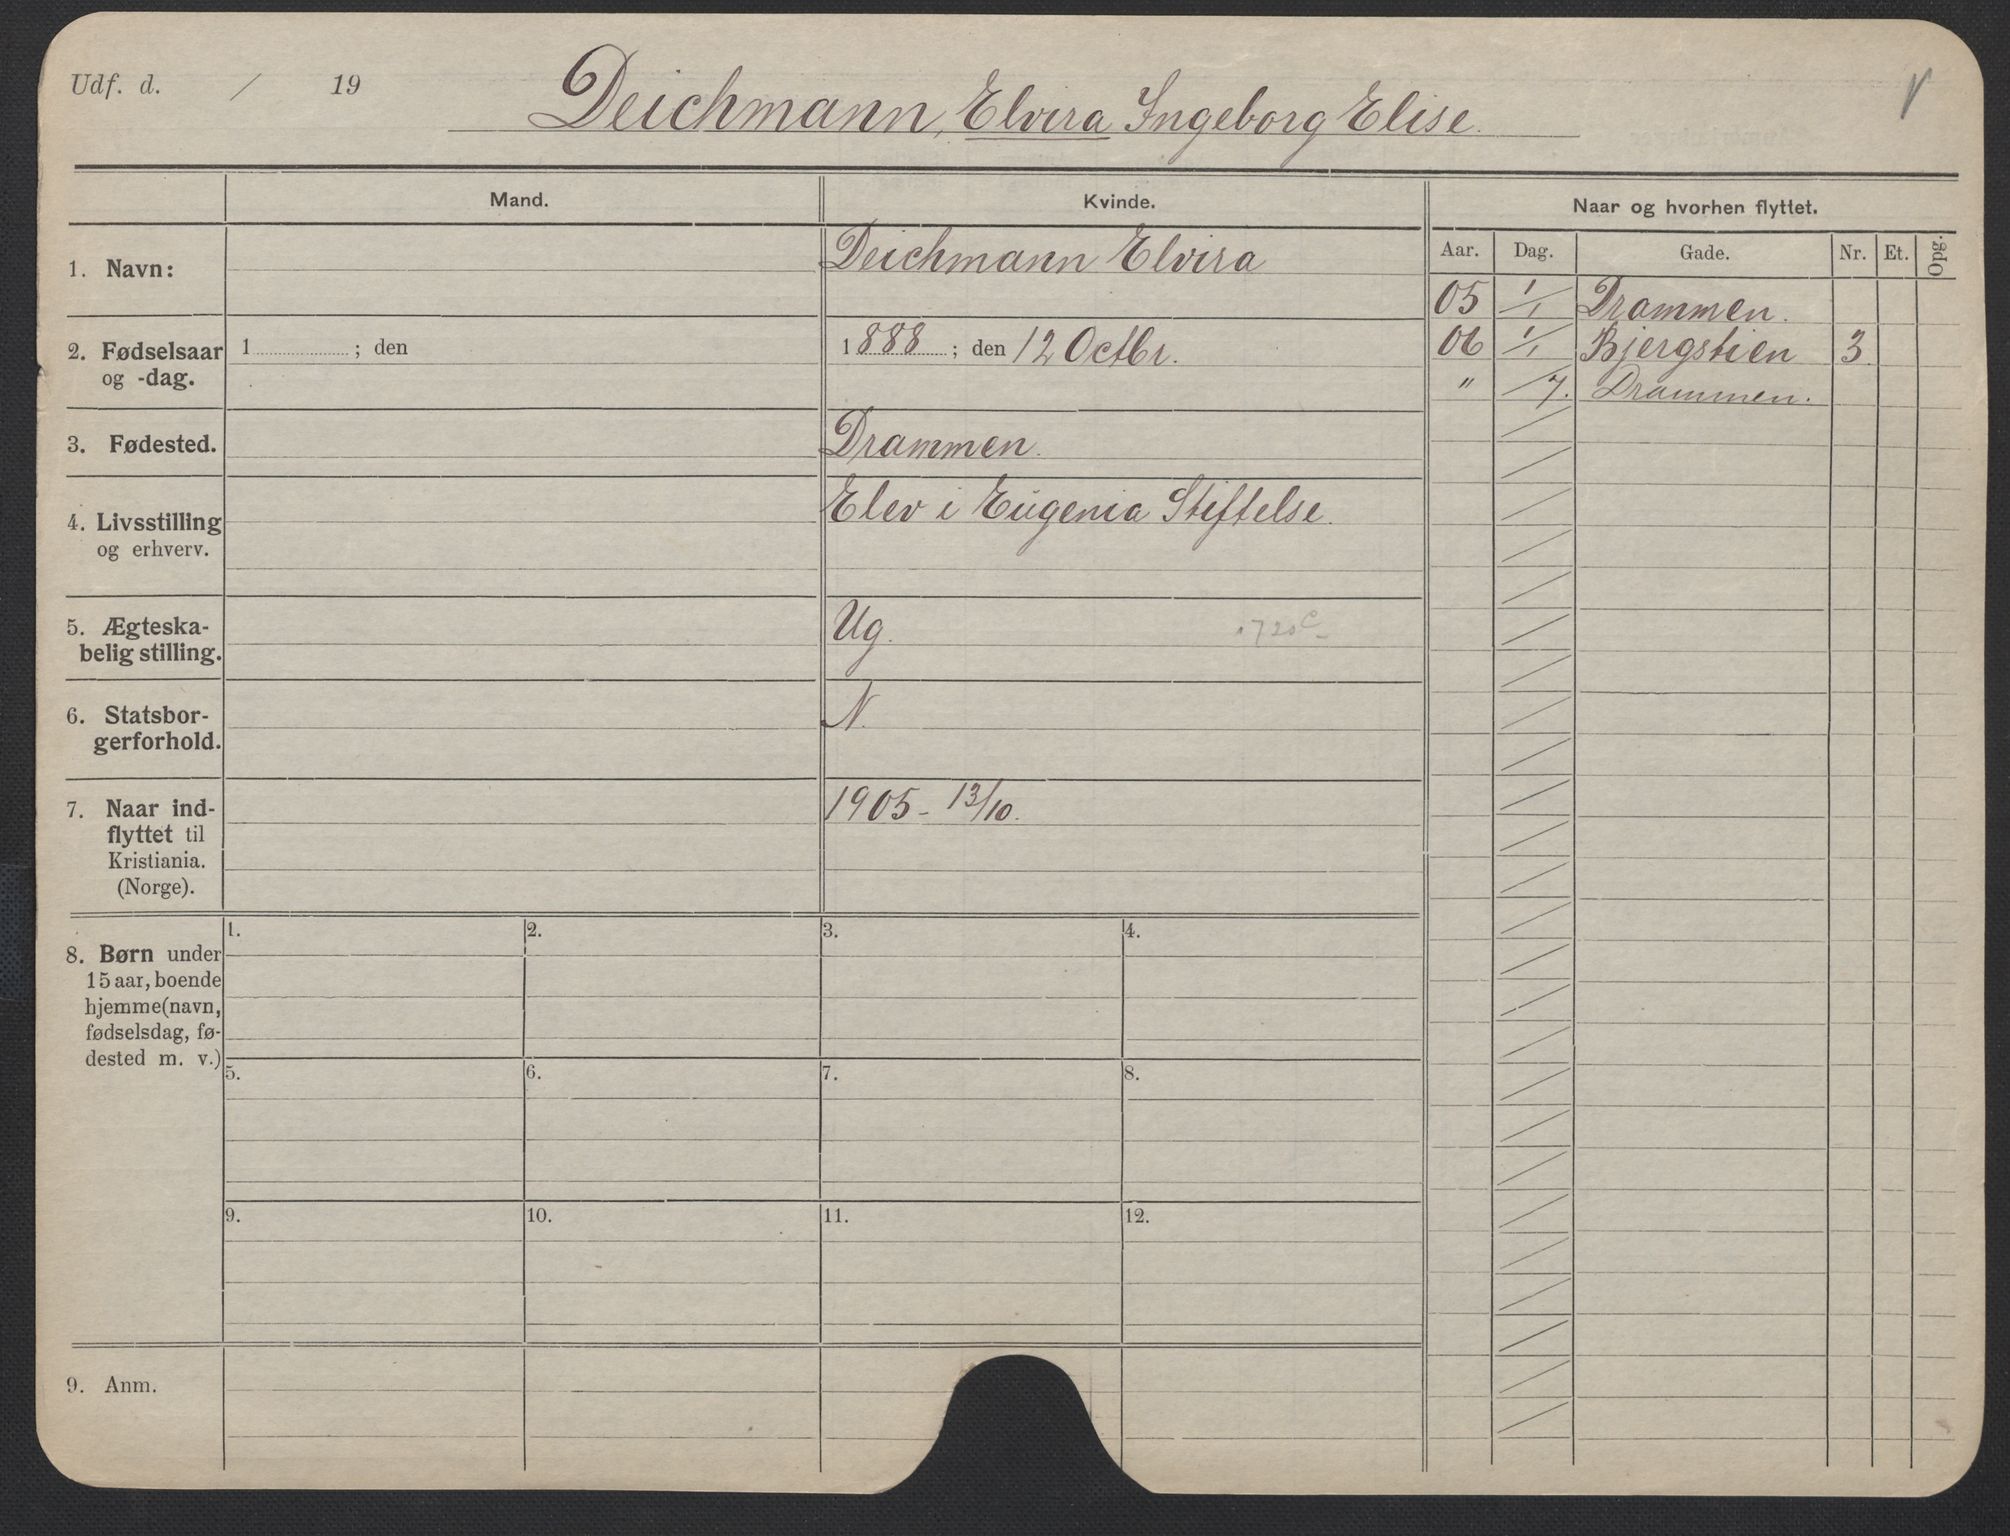 Udf. d. / 19
Deichmann, Elvira Ingeborg Elise.
Mand.
Kvinde.
Naar og hvorhen flyttet.
Aar. Dag. Gade. Nr. Et. Opg.
1. Navn:
Deichmann Elvira
05 1/1 Drammen.
2. Fødselsaar
og -dag.
1 ; den
1888 ; den 12 Octbr.
06 1/1 Bjergstien 3
" /7. Drammen.
3. Fødested.
Drammen.
4. Livsstilling
og erhverv.
Elev i Eugenia Stiftelse.
5. Ægteska-
belig stilling.
Ug.
6. Statsbor-
gerforhold.
N.
7. Naar ind-
flyttet til
Kristiania.
(Norge).
1905 - 13/10.
8. Børn under
15 aar, boende
hjemme (navn,
fødselsdag, fø-
dested m. v.)
1. 2. 3. 4.
5. 6. 7. 8.
9. 10. 11. 12.
9. Anm.